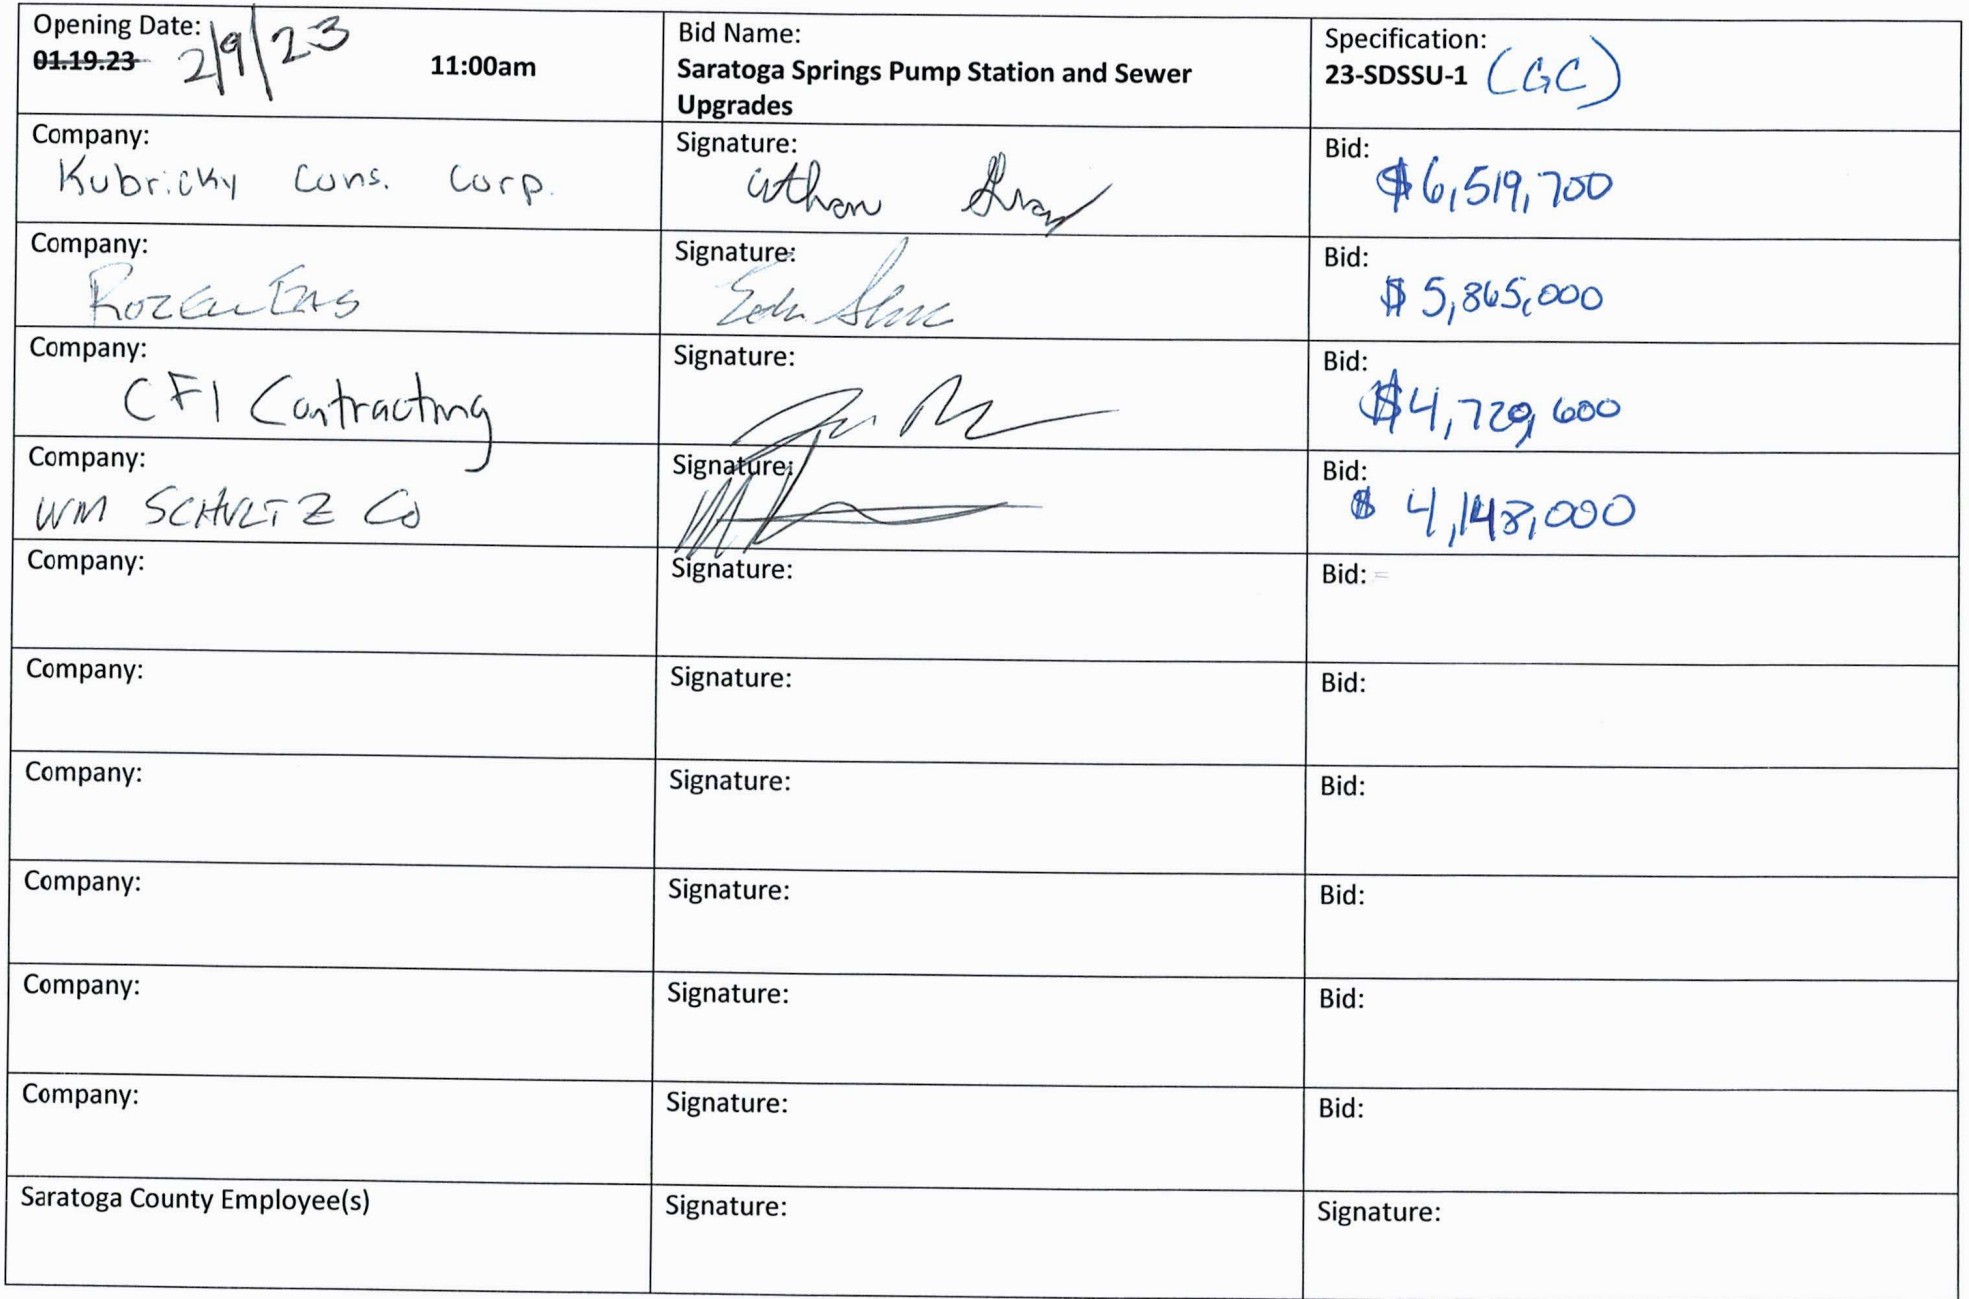 Opening Date:
01.19.23 2/9/23 11:00am
Bid Name:
Saratoga Springs Pump Station and Sewer
Upgrades
Specification:
23-SDSSU-1 (GC)
Company:
Kubricky Cons. Corp.
Signature:
Bid:
$6,519,700
Company:
Signature:
Bid:
$ 5,865,000
Company:
CFI Contracting
Signature:
Bid:
$4,729,600
Company:
WM SCHULTZ Co
Signature:
Bid:
$ 4,148,000
Company:
Signature:
Bid:
Company:
Signature:
Bid:
Company:
Signature:
Bid:
Company:
Signature:
Bid:
Company:
Signature:
Bid:
Company:
Signature:
Bid:
Saratoga County Employee(s)
Signature:
Signature: